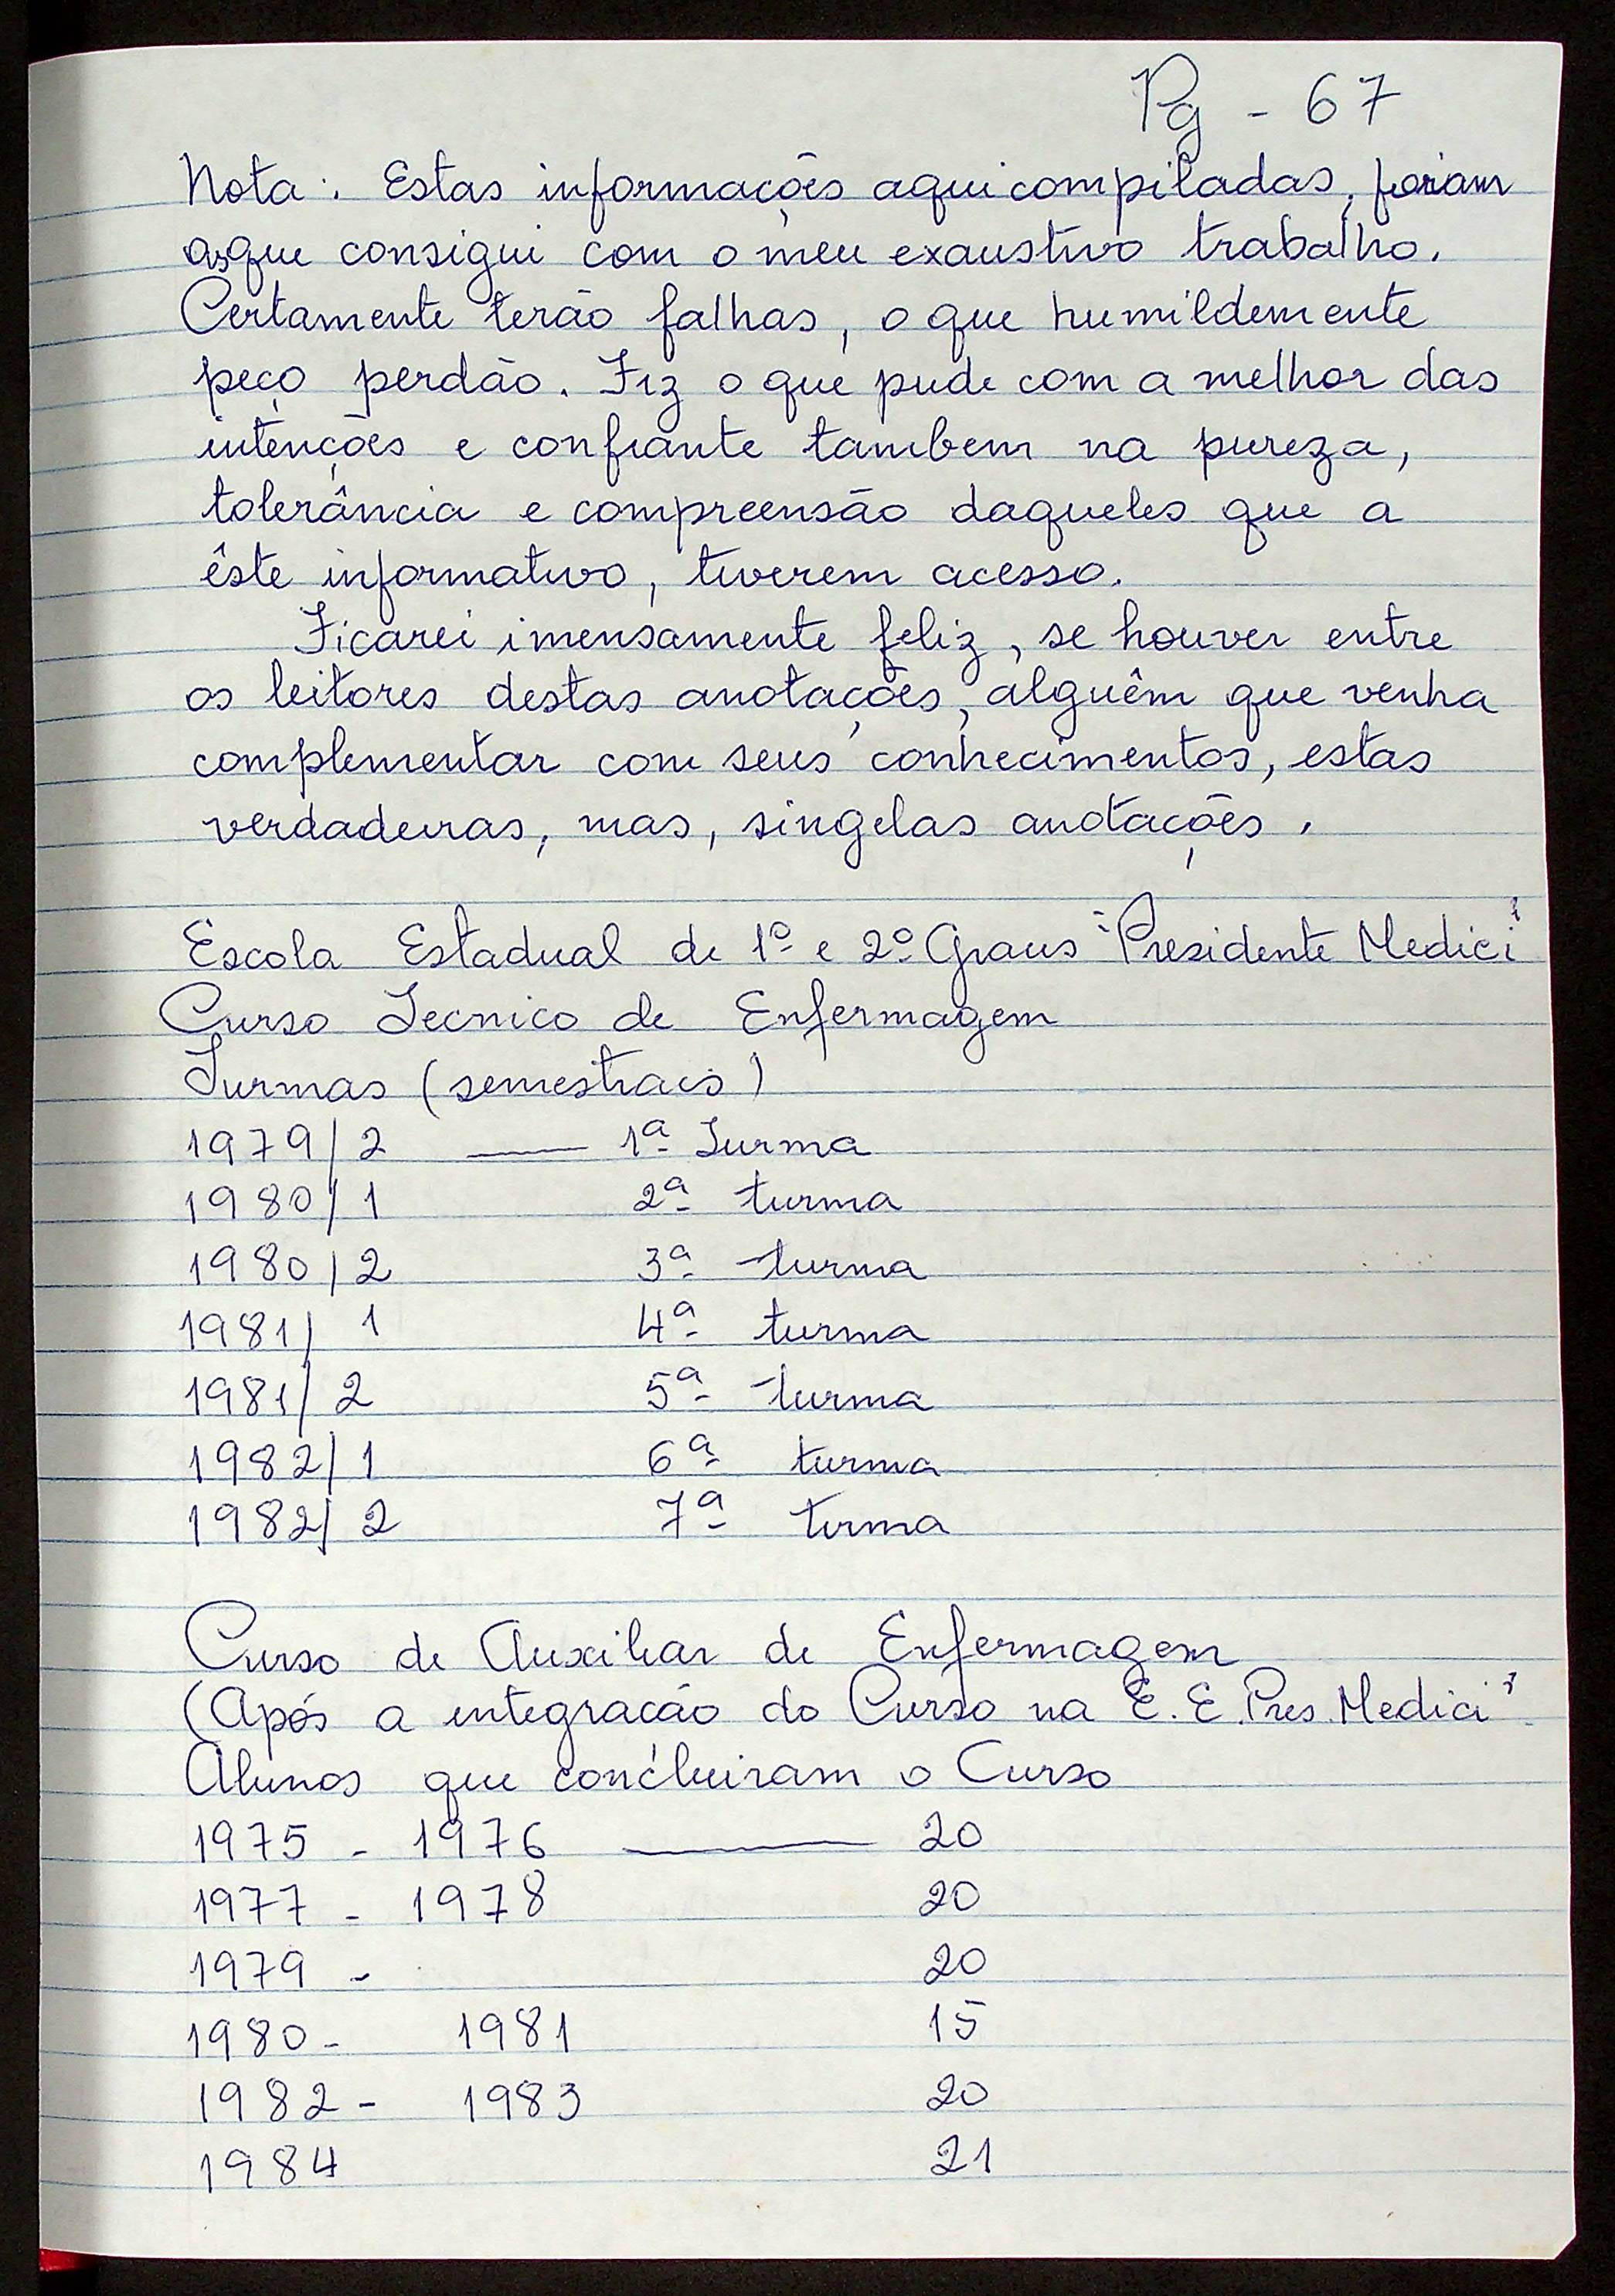 Pg - 67
Nota: Estas informações aqui compiladas, foram
as que consigui com o meu exaustivo trabalho.
Certamente terão falhas, o que humildemente
peço perdão. Fiz o que pude com a melhor das
intenções e confiante tambem na pureza,
tolerância e compreensão daqueles que a
êste informativo, tiverem acesso.
Ficarei imensamente feliz, se houver entre
os leitores destas anotações, alguêm que venha
complementar com seus conhecimentos, estas
verdadeiras, mas, singelas anotações.
Escola Estadual de 1º e 2º Graus "Presidente Medici"
Curso Tecnico de Enfermagem
Turmas (semestrais)
1979/2 —— 1ª Turma
1980/1 2ª turma
1980/2 3ª turma
1981/1 4ª turma
1981/2 5ª turma
1982/1 6ª turma
1982/2 7ª turma
Curso de Auxiliar de Enfermagem
(Após a integração do Curso na E. E. Pres. Medici"
Alunos que concluiram o Curso
1975 - 1976 —— 20
1977 - 1978 20
1979 - 20
1980 - 1981 15
1982 - 1983 20
1984 21